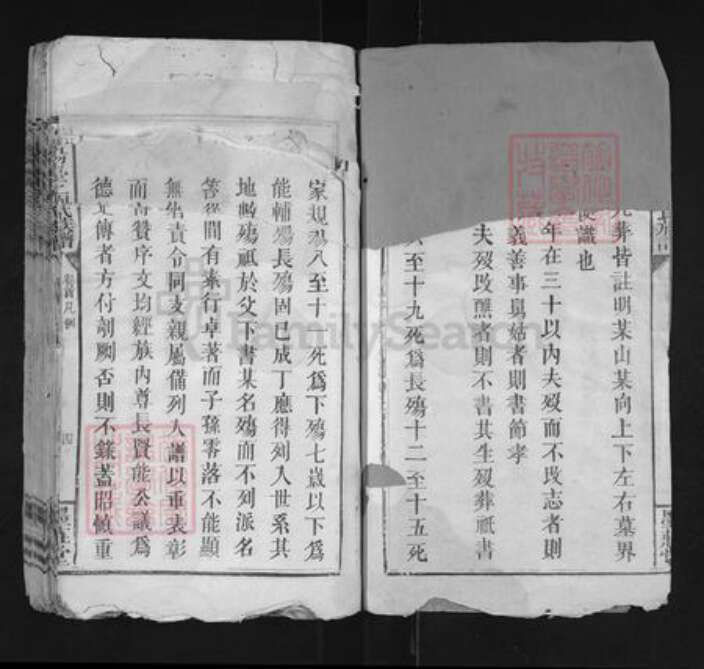 葬皆註明某山某向上下左右墓界
識也
年在三十以內夫歿而不改志者則
義善事舅姑者則書節孝
夫歿改醮者則不書其生歿葬祗書
至十九死爲長殤十二至十五死
家規殤八至十一死爲下殤七歲以下爲
能輔殤長殤固已成丁應得列入世系其
地齡殤祗於父下書某名殤而不列派名
等從間有素行卓著而子孫零落不能顯
無告責令同支親屬備列人譜以重表彰
而音贊序文均經族內尊長賢能公議爲
德足傳者方付剞劂否則不錄蓋昭愼重
卷首凡例
四
FamilySearch